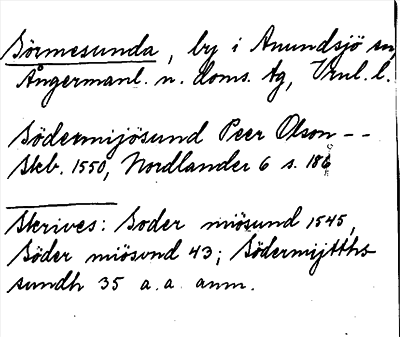 Sörmesunda, by i Anundsjö sn,
Ångermanl. n. doms. tg, Vnl. l.
Södermijösund Peer Olson --
Skb. 1550, Nordlander 6 s. 186
Skrives: Soder miösund 1545,
Söder miösvnd 43; Södermijtths
sundh 35 a. a. anm.